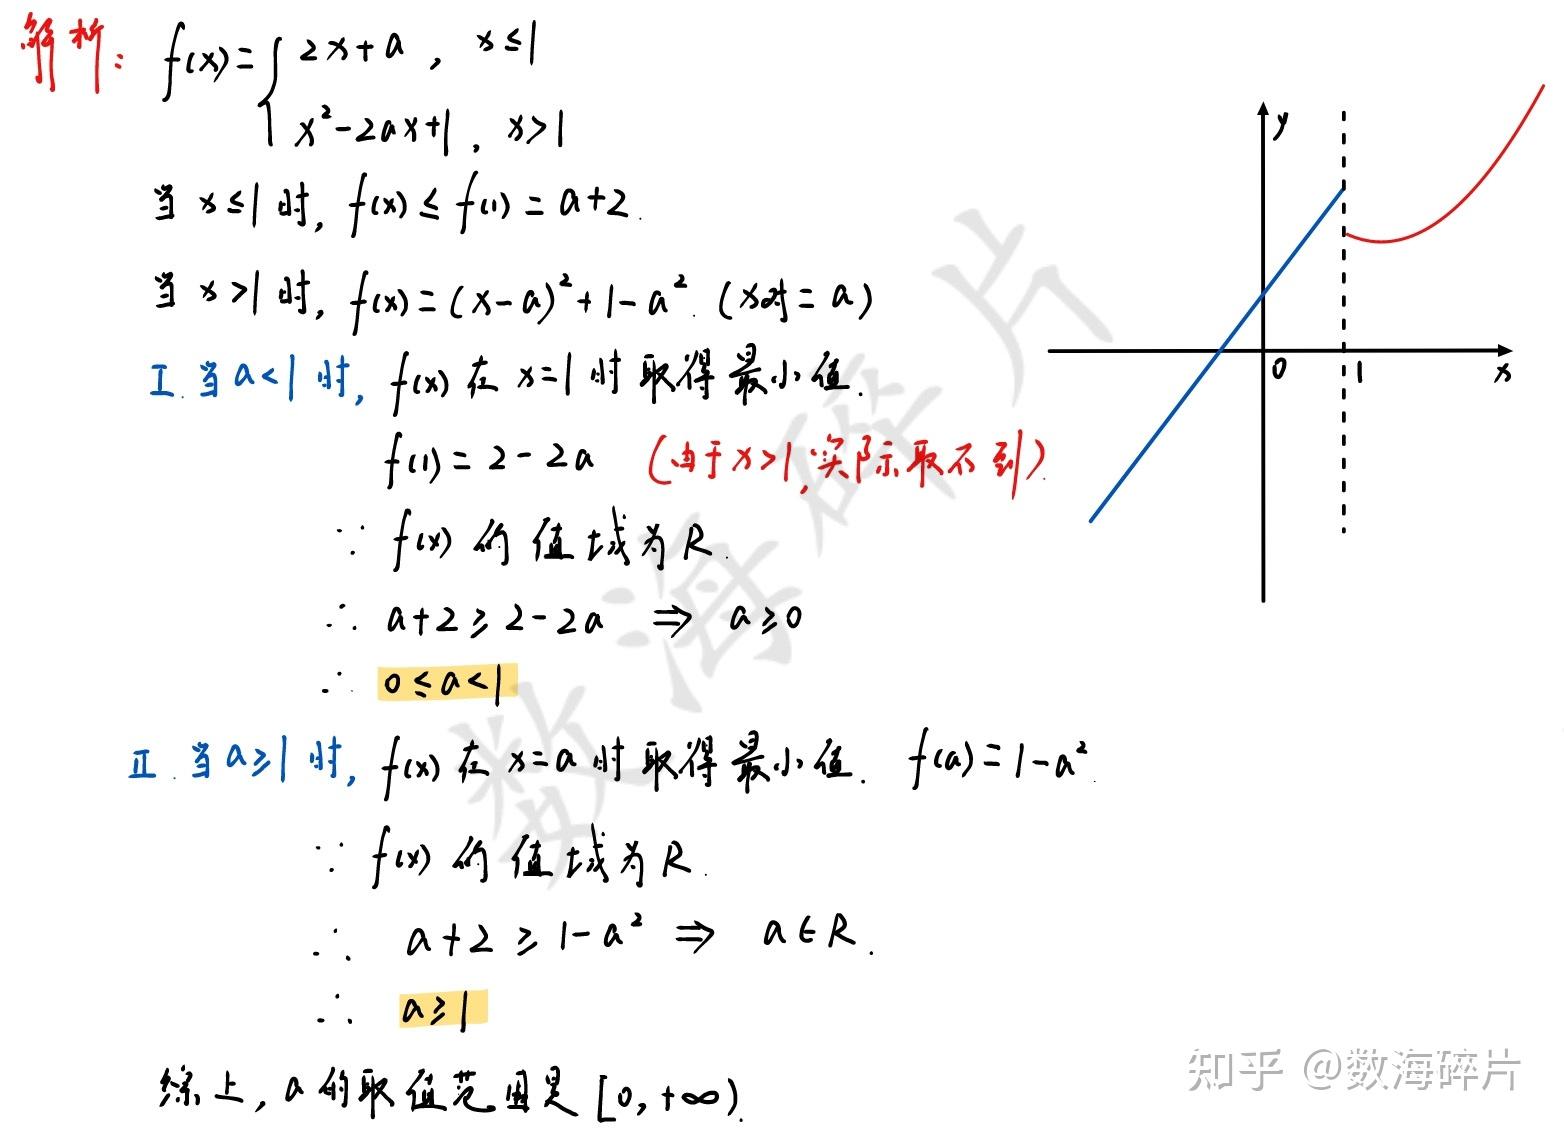 解析: f(x)={ 2x+a, x≤1
x²-2ax+1, x>1
当 x≤1 时, f(x)≤f(1)=a+2.
当 x>1 时, f(x)=(x-a)²+1-a². (x对=a)
I. 当a<1 时, f(x) 在 x=1 时取得最小值.
f(1)=2-2a (由于x>1, 实际取不到)
∵ f(x) 的值域为R.
∴ a+2≥2-2a ⇒ a≥0
∴ 0≤a<1
II. 当a≥1 时, f(x) 在 x=a 时取得最小值. f(a)=1-a².
∵ f(x) 的值域为R.
∴ a+2≥1-a² ⇒ a∈R.
∴ a≥1
综上, a的取值范围是[0,+∞).
y
0
1
x
数海碎片
知乎 @数海碎片